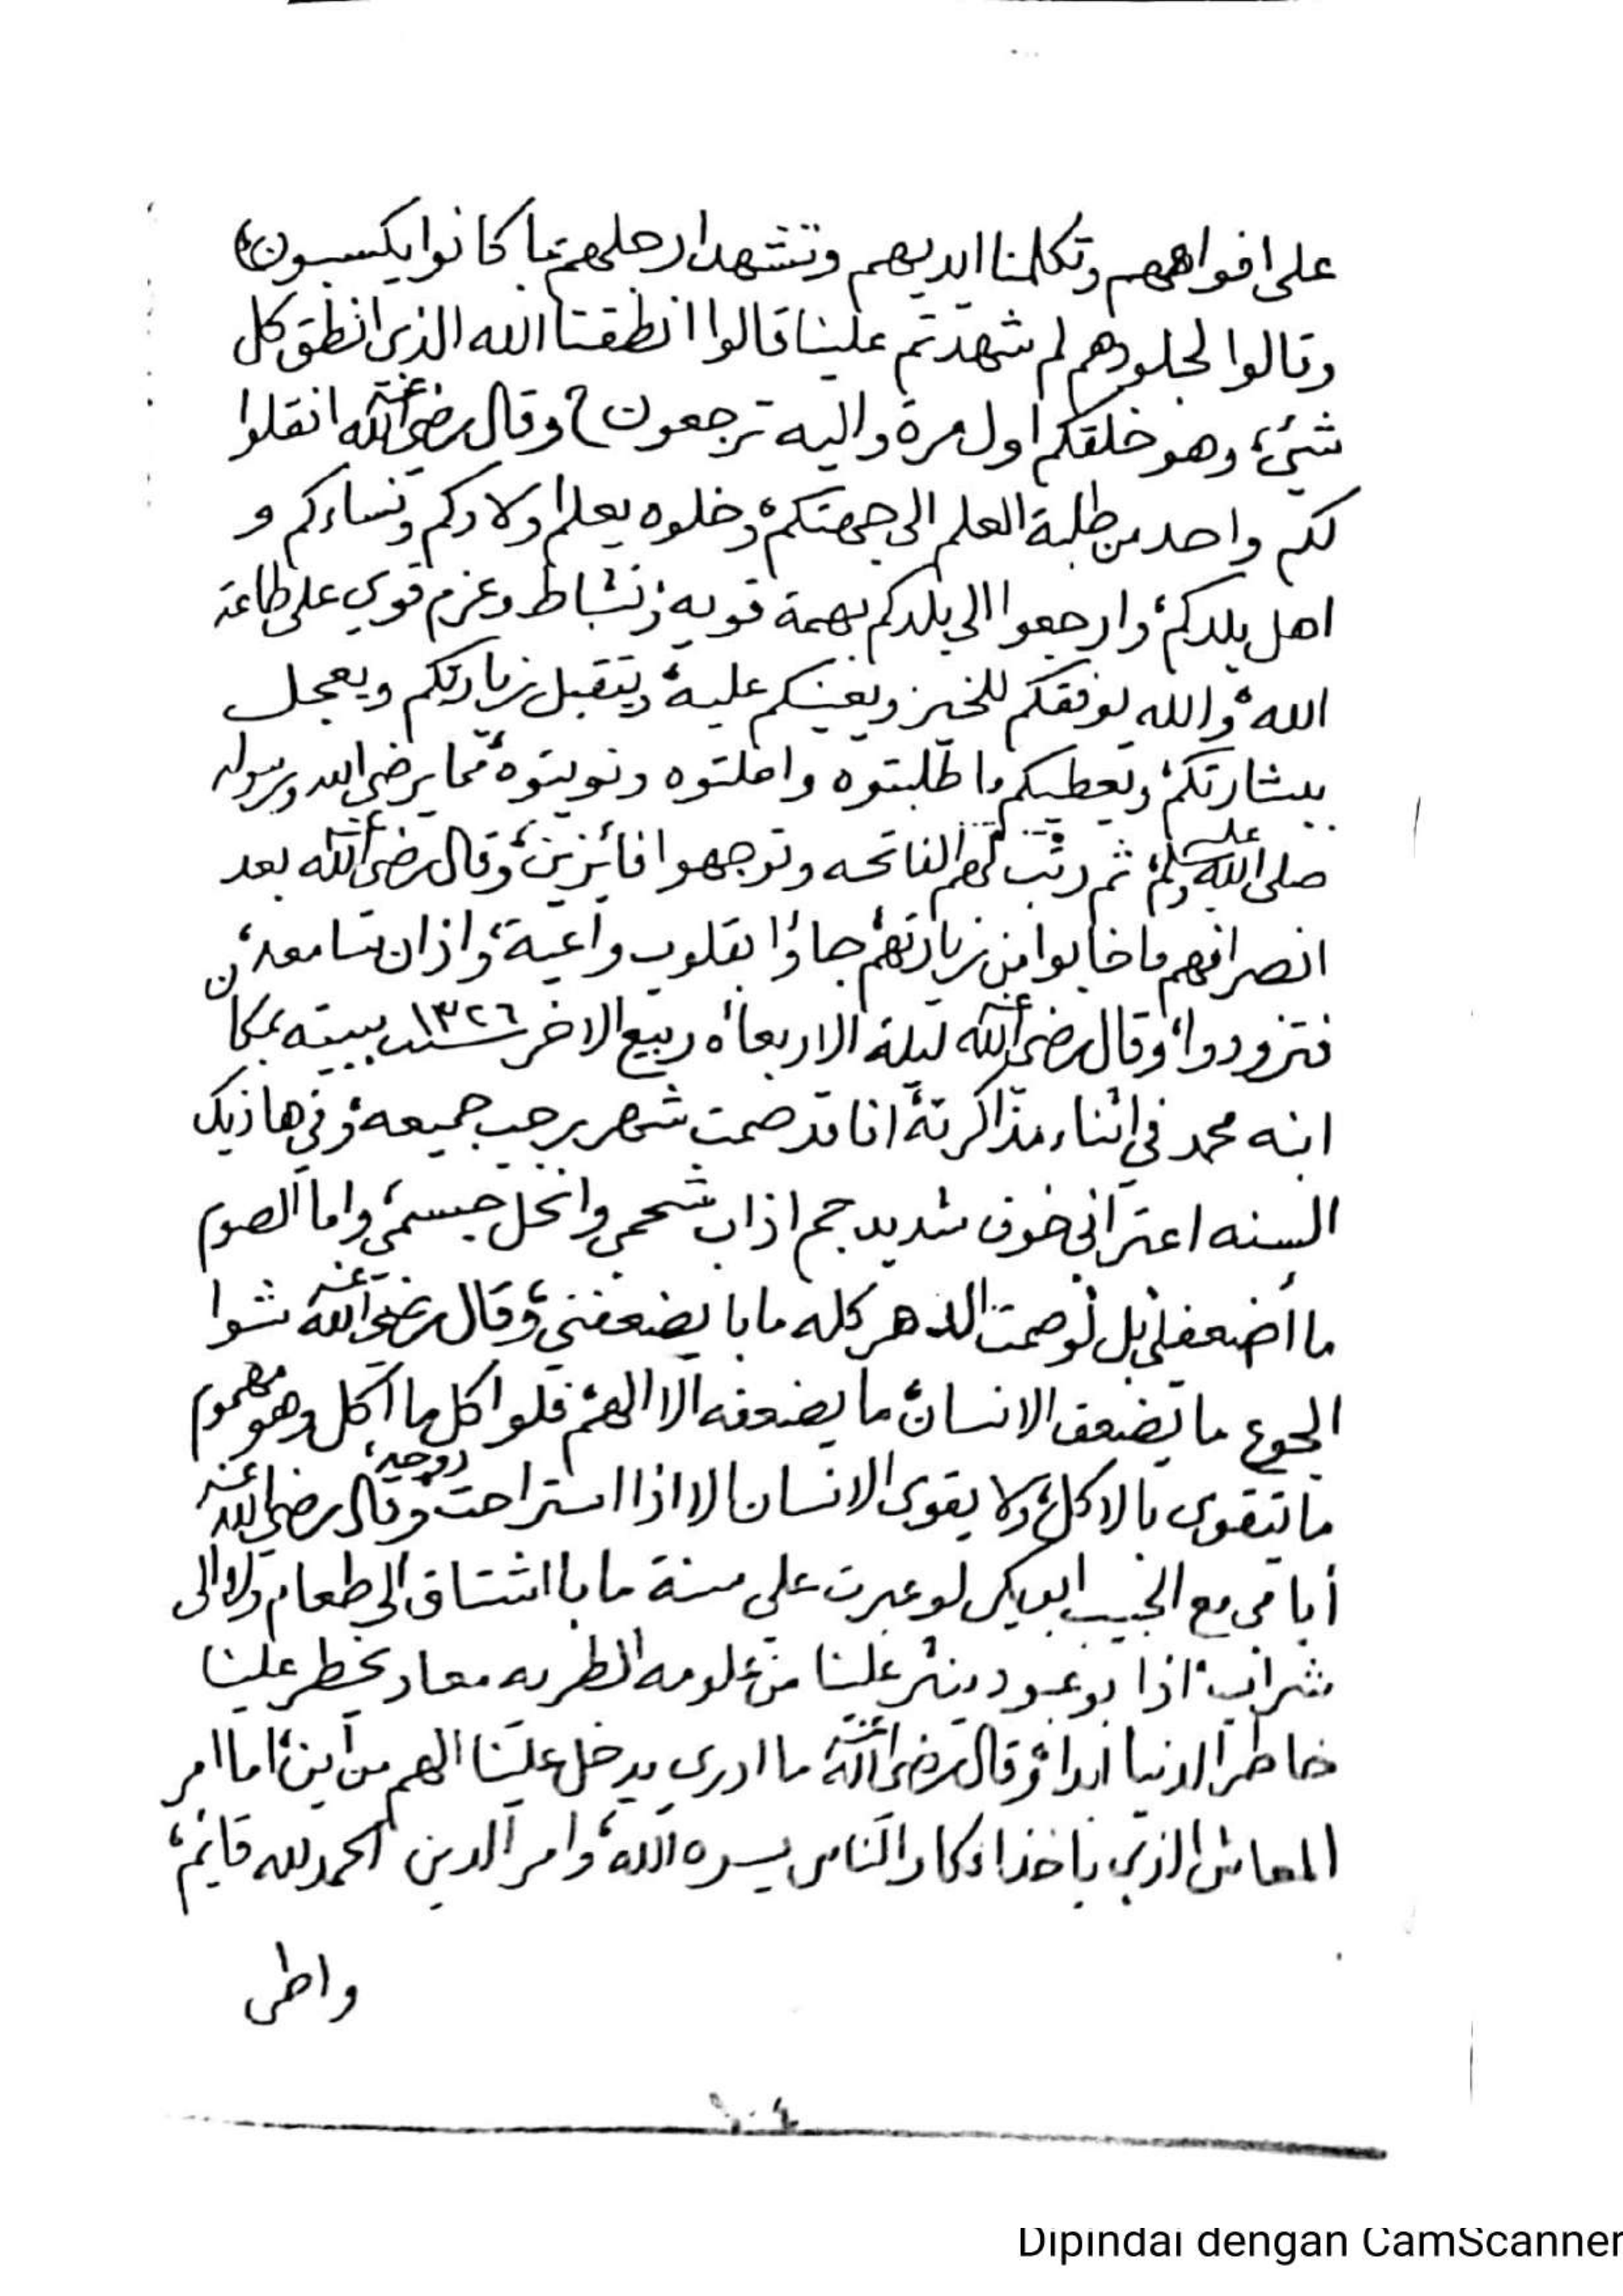 على افواههم وتكلمنا ايديهم وتشهد ارجلهم بما كانوا يكسبون)
وقالوا لجلودهم لم شهدتم علينا قالوا انطقنا الله الذي انطق كل
شيء، وهو خلقكم اول مرة واليه ترجعون) وقال رضي الله عنه انقلوا
لكم واحد من طلبة العلم الى جهتكم، وخلوه يعلم اولادكم ونساءكم و
اهل بلدكم، وارجعوا الى بلدكم بهمة قويه ونشاط وعزم قوي على طاعة
الله، والله يوفقكم للخير ويعينكم عليه، ويتقبل زيارتكم ويعجل
ببشارتكم، ويعطيكم ما طلبتوه واملتوه ونويتوه، مما يرضي الله ورسوله
صلى الله عليه وسلم، ثم رتب لهم الفاتحه وتوجهوا فائزين، وقال رضي الله عنه بعد
انصرافهم ما خابوا من زيارتهم، جاؤا بقلوب واعية، واذان سامعه،
فتزودوا، وقال رضي الله عنه ليلة الاربعاء ربيع الاخر سنة ١٣٢٦ ببيته بمكان
ابنه محمد في اثناء مذاكرته، انا قد صمت شهر رجب جميعه، وفي هاذيك
السنه اعتراني خوف شديد جم اذاب شحمي وانحل جسمي، واما الصوم
ما أضعفني بل لو صمت الدهر كله ما با يضعفني، وقال رضي الله عنه شوا
الجوع ما يضعف الانسان، ما يضعفه الا الهم، فلو اكل ما اكل وهو مهموم
ما تقوى بالاكل، ولا يقوى الانسان الا اذا استراحت روحه، وقال رضي الله عنه
أيامي مع الحبيب ابوبكر لو عبرت علي سنة ما با اشتاق الى طعام ولا الى
شراب، اذا بوعبود ينثر علينا من علومه الطريه معاد يخطر علينا
خاطر الدنيا ابدا، وقال رضي الله عنه ما ادري يدخل علينا الهم من اين، اما امر
المعاش الذي ياخذ افكار الناس يسره الله، وامر الدين الحمد لله قايم،